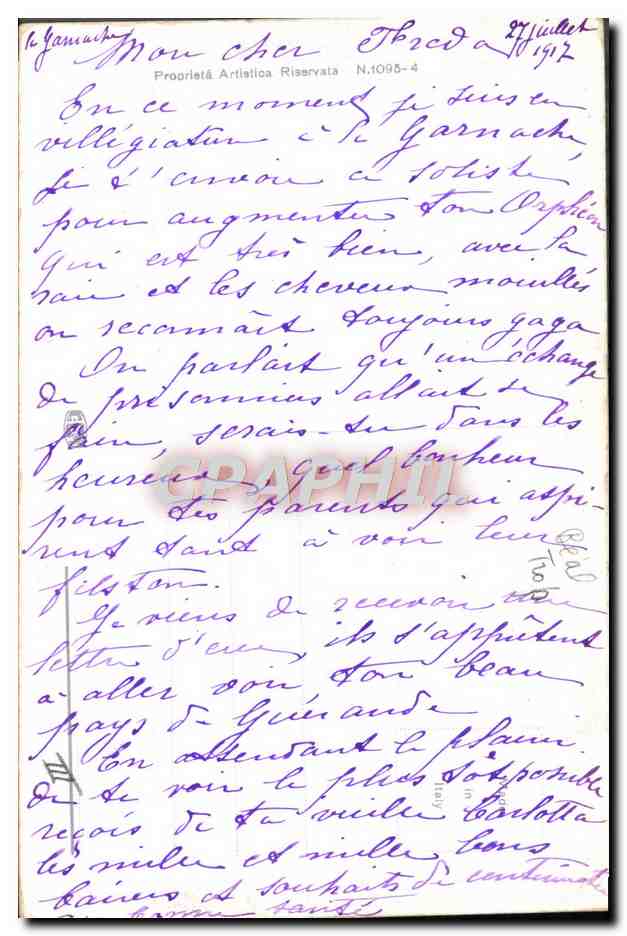 la Garnache 27 juillet 1917
Mon cher Freda
Proprietà Artistica Riservata N.1095-4
En ce moment je suis en
villégiature à la Garnache,
je t'envoie ce soliste
pour augmenter ton Orphéon
qui est très bien, avec la
raie et les cheveux mouillés
on reconnaît toujours gaga
On parlait qu'un échange
de prisonniers allait se
faire, serais-tu dans les
heureux, quel bonheur
pour tes parents qui aspi-
rent tant à voir leur
fiston.
Je viens de recevoir une
lettre d'eux, ils s'apprêtent
à aller voir ton beau
pays de Guérande
En attendant le plaisir
de te voir le plus tôt possible
reçois de ta vieille Carlotta
les mille et mille bons
baisers et souhaits de
bonne santé
CPAPHIL
Réal
Trop
III
in Italy